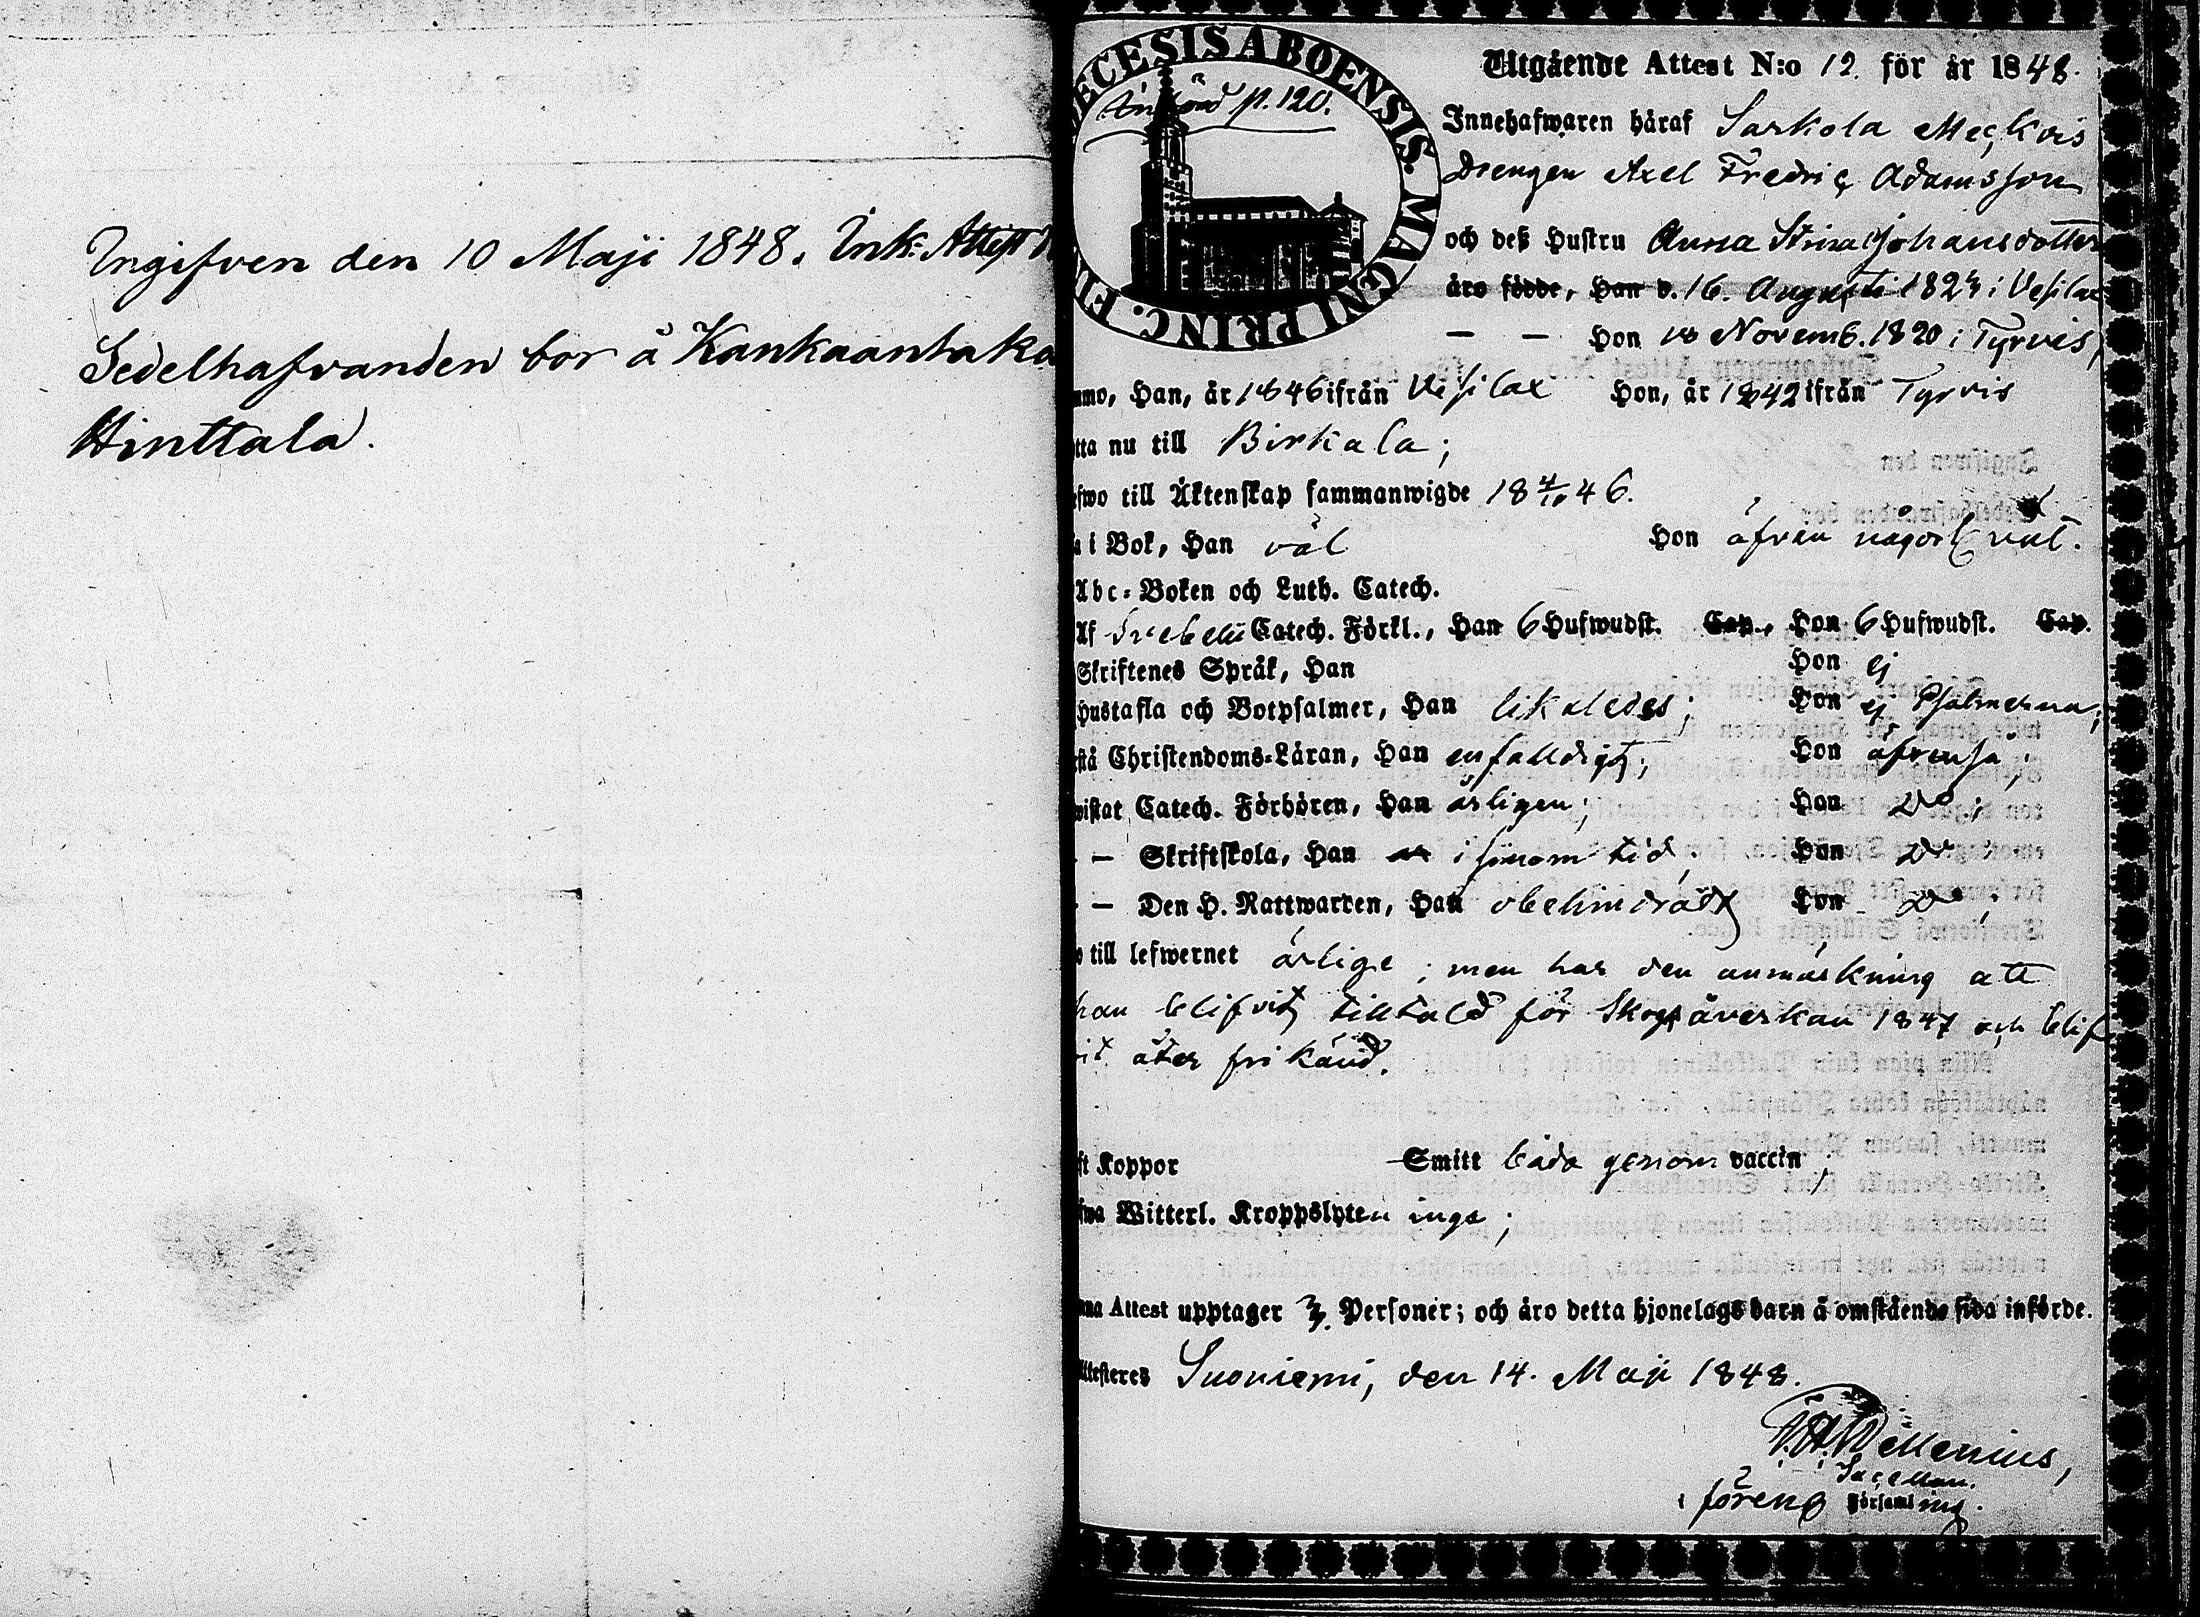 Ingifven den 10 Maji 1848. Ink: Attest
Sedelhafvanden bor å Kankaanhaka
Hinttala.
ECESIS ABOENSIS. MAGNI PRINC. FI
p. 120.
Utgående Attest N:o 12. för år 1848.
Innehafwaren häraf Sarkola
Drengen Axel Fredric Adamsson
och deß Hustru Anna Stina Johansdotter
äro födde, Han d. 16. Augusti 1823 i Vesilax
— — Hon Novemb. 1820 i Tyrvis,
mo, Han, år 1846 ifrån Vesilax Hon, år 1842 ifrån Tyrvis
tta nu till Birkala;
efwo till Äktenskap sammanwigde 18 4/10 46.
a i Bok, Han väl Hon äfven någorl. väl.
Abc-Boken och Luth. Catech.
Af Svebelii Catech. Förkl., Han 6 Hufwudst. Cap., Hon 6 Hufwudst. Cap.
Skriftenes Språk, Han Hon ej
Hustafla och Botpsalmer, Han likaledes; Hon ej Psalmerna;
stå Christendoms-Läran, Han enfaldigt; Hon äfvenså;
wistat Catech. Förhören, Han årligen; Hon Do;
— Skriftskola, Han i sinom tid; Hon Do;
— Den H. Nattwarden, Han obehindradt Hon Do;
o till lefwernet ärlige; men har den anmärkning att
han blifvit tilltald för Skogsåverkan 1847 och blif
vit åter frikänd.
ft Koppor Smitt båda genom vaccin;
fwa Witterl. Kroppslyten inga;
nna Attest upptager 3. Personer; och äro detta hjonelags barn å omstående sida införde.
Attesteres Suoniemi, den 14. Maji 1848.
Wellenius,
Sacellan.
i föreng Församling.